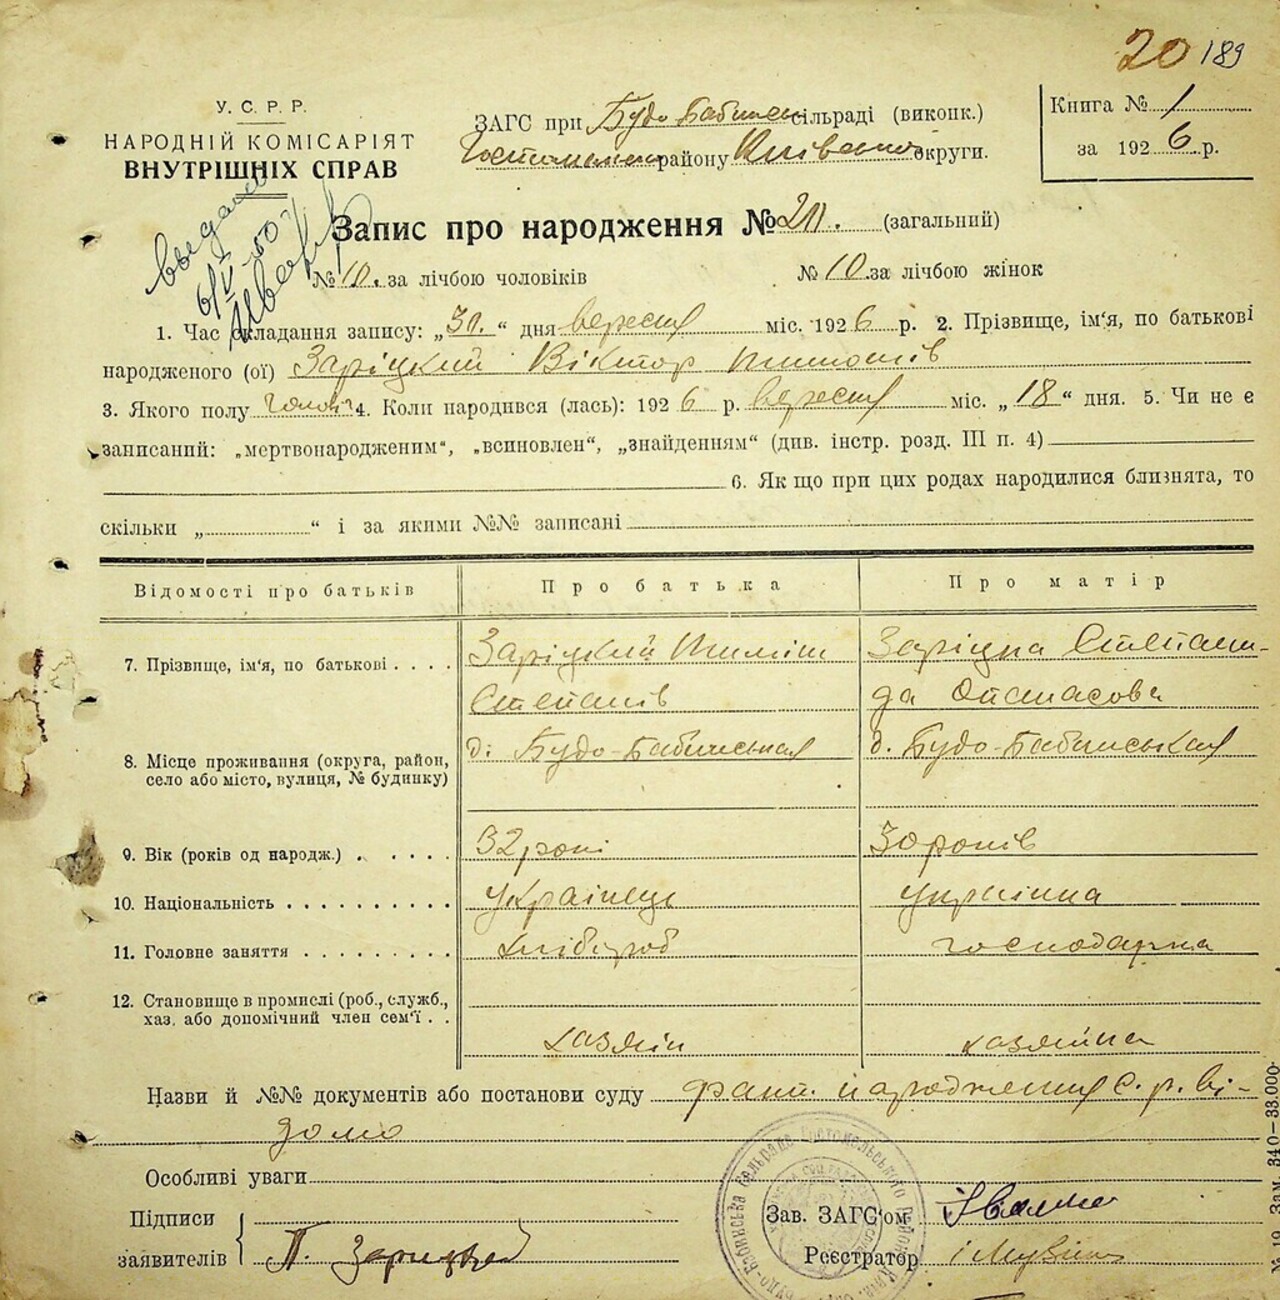 20 189
У. С. Р. Р.
НАРОДНІЙ КОМІСАРІЯТ
ВНУТРІШНІХ СПРАВ
ЗАГС при Будо-Бабинськ сільраді (виконк.)
району Київської округи.
Книга № 1
за 1926 р.
Запис про народження № (загальний)
№ 10. за лічбою чоловіків № 10 за лічбою жінок
1. Час складання запису: „30.“ дня вересня міс. 1926 р. 2. Прізвище, ім'я, по батькові
народженого (ої) Заріцкий Віктор Тимошів
3. Якого полу чолов. 4. Коли народився (лась): 1926 р. вересня міс. „18“ дня. 5. Чи не є
записаний: „мертвонародженим“, „всиновлен“, „знайденням“ (див. інстр. розд. III п. 4)
6. Як що при цих родах народилися близнята, то
скільки „ “ і за якими №№ записані
Відомості про батьків Про батька Про матір
7. Прізвище, ім'я, по батькові . . . . Заріцкий Тиміш Заріцка Степани-
Степанів да Опанасова
8. Місце проживання (округа, район, д. Будо-Бабинськая д. Будо-Бабинськая
село або місто, вулиця, № будинку)
9. Вік (років од народж.) . . . . . 32 роки 30 років
10. Національність . . . . . . . . . . Українець Українка
11. Головне заняття . . . . . . . . . хлібороб господарка
12. Становище в промислі (роб., служб.,
хаз. або допомічний член сем'ї . . хазяїн хазяйка
Назви й №№ документів або постанови суду факт народження с. р. ві-
домо
Особливі уваги
Підписи
заявителів П. Зарицкей
Зав. ЗАГС'ом
Реєстратор